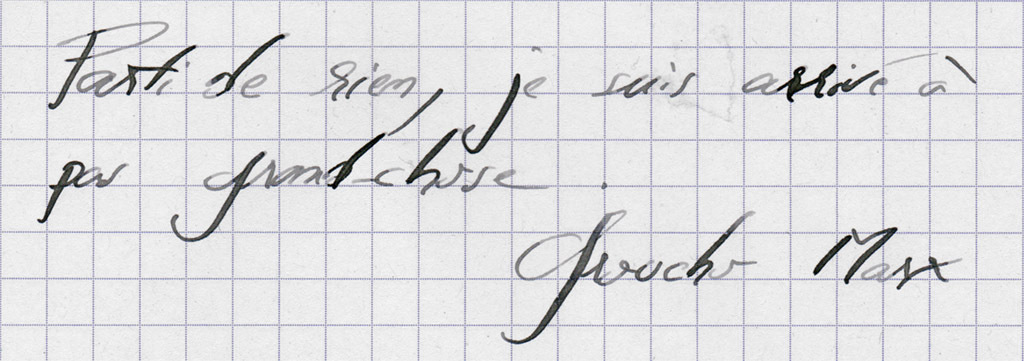 Parti de rien, je suis arrivé à
pas grand-chose.
Groucho Marx